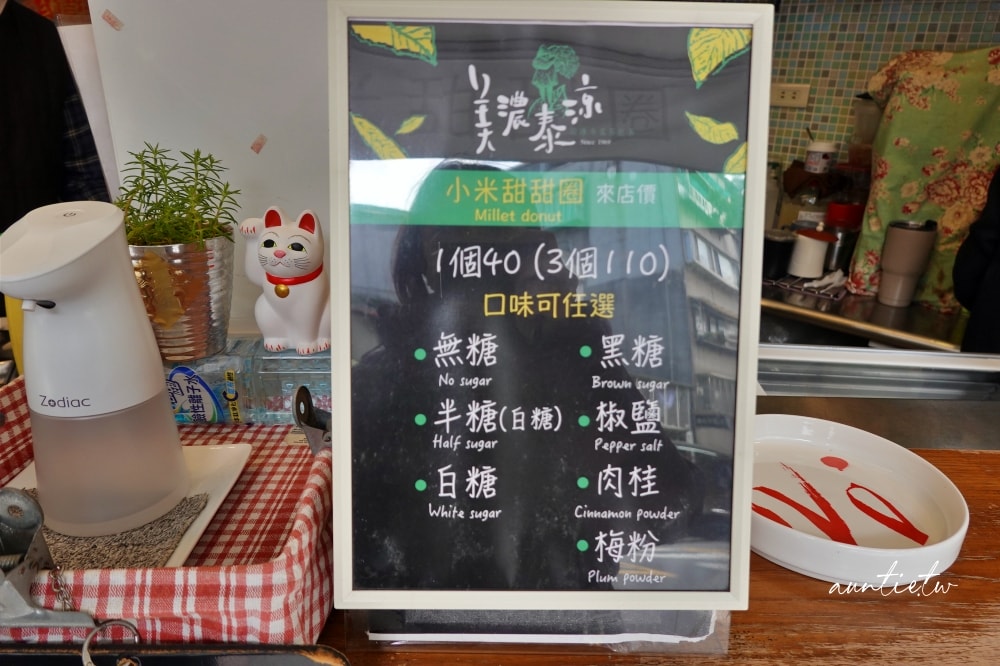 美濃泰涼
Since 1969
小米甜甜圈 來店價
Millet donut
1個40 (3個110)
口味可任選
無糖
No sugar
半糖(白糖)
Half sugar
白糖
White sugar
黑糖
Brown sugar
椒鹽
Pepper salt
肉桂
Cinnamon powder
梅粉
Plum powder
Zodiac
auntie.tw